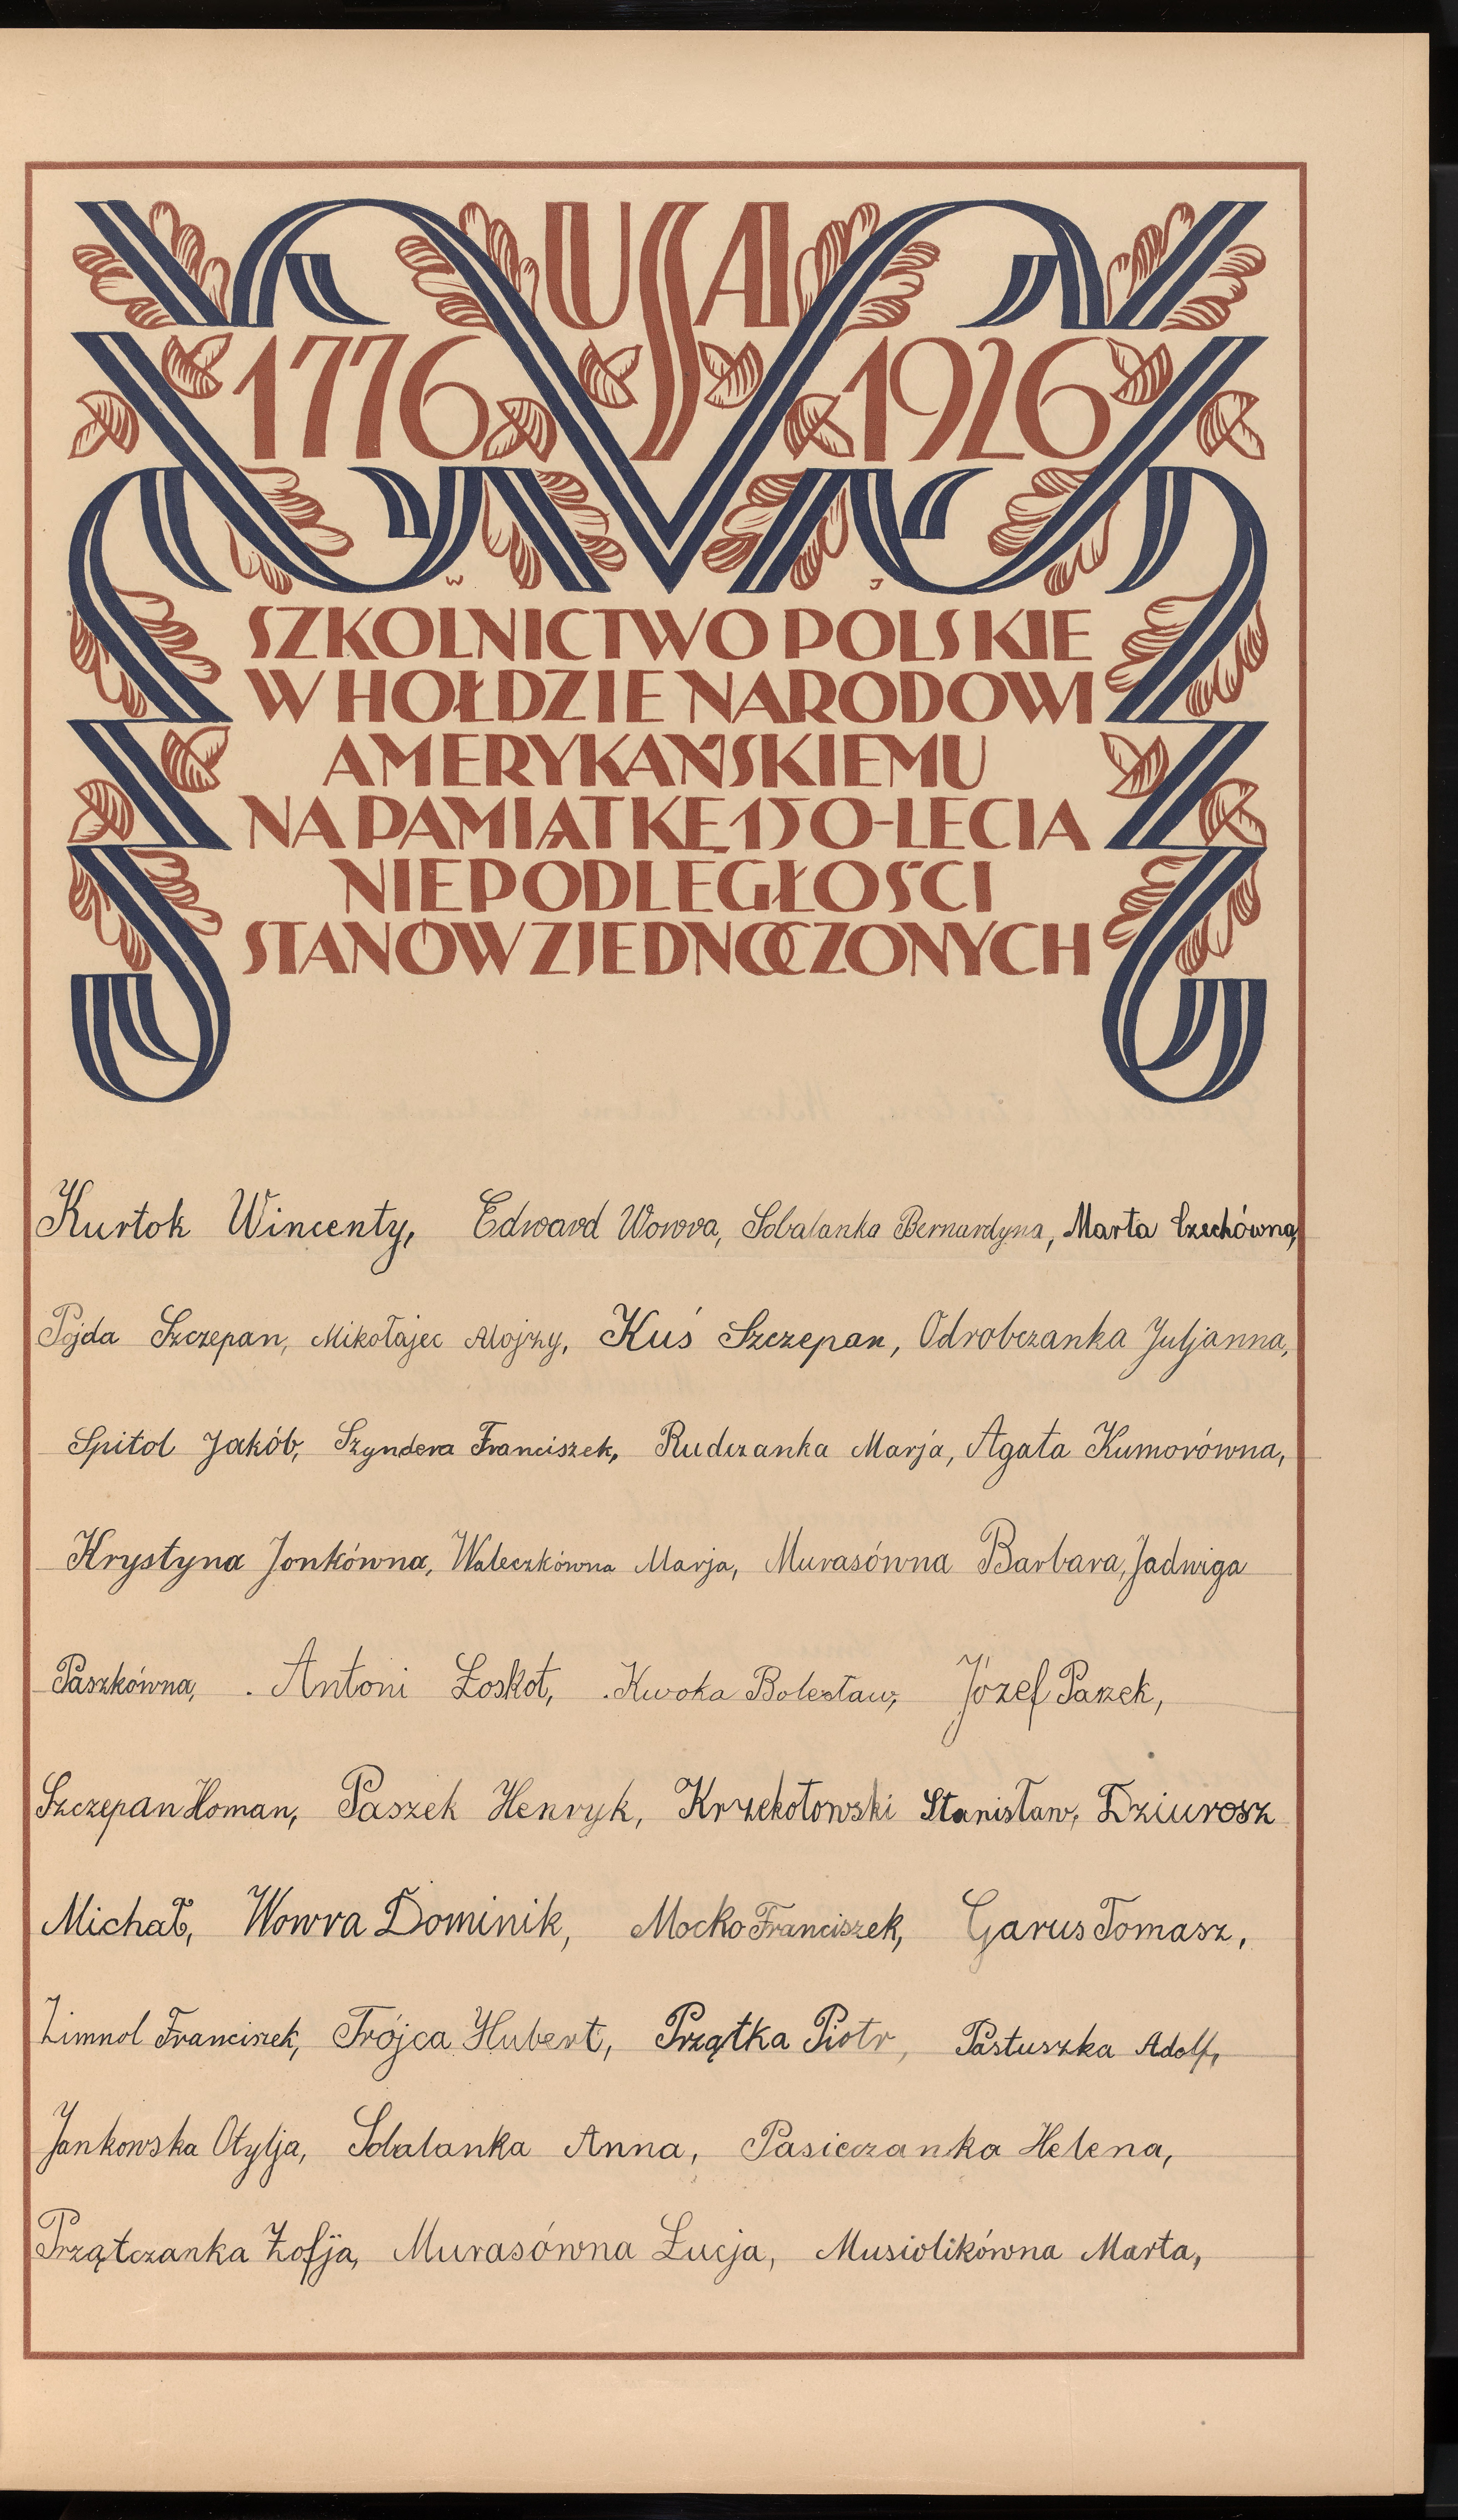 USA
1776 1926
W J
SZKOLNICTWO POLSKIE
W HOŁDZIE NARODOWI
AMERYKAŃSKIEMU
NA PAMIĄTKĘ 150-LECIA
NIEPODLEGŁOŚCI
STANÓW ZJEDNOCZONYCH
Kurtok Wincenty, Edward Wowra, Sobalanka Bernardyna, Marta Czechówna,
Pojda Szczepan, Mikołajec Alojzy, Kuś Szczepan, Odrobczanka Juljanna,
Spitol Jakób, Szyndera Franciszek, Rudczanka Marja, Agata Kumorówna,
Krystyna Jonkówna, Waleczkówna Marja, Murasówna Barbara, Jadwiga
Paszkówna, Antoni Łoskot, Kwoka Bolesław, Józef Paszek,
Szczepan Homan, Paszek Henryk, Krzekotowski Stanisław, Dziurosz
Michał, Wowra Dominik, Mocko Franciszek, Garus Tomasz,
Zimnol Franciszek, Trójca Hubert, Prządka Piotr, Pastuszka Adolf,
Jankowska Otylja, Sobalanka Anna, Pasieczanka Helena,
Prządczanka Zofja, Murasówna Łucja, Musiolikówna Marta,